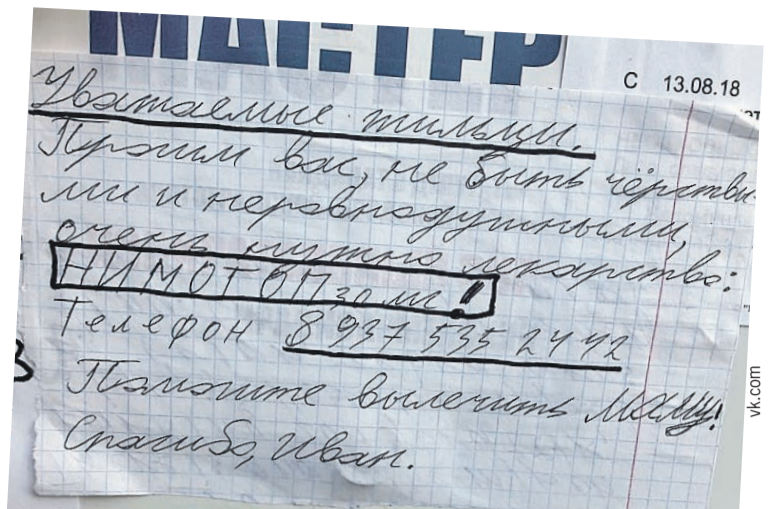 МАСТЕР
С 13.08.18
Уважаемые жильцы.
Просим вас, не быть чёрствы-
ми и неравнодушными,
очень нужно лекарство:
НИМОТОП 30 мг!
Телефон 8 937 535 24 42
Помогите вылечить Маму!
Спасибо, Иван.
vk.com